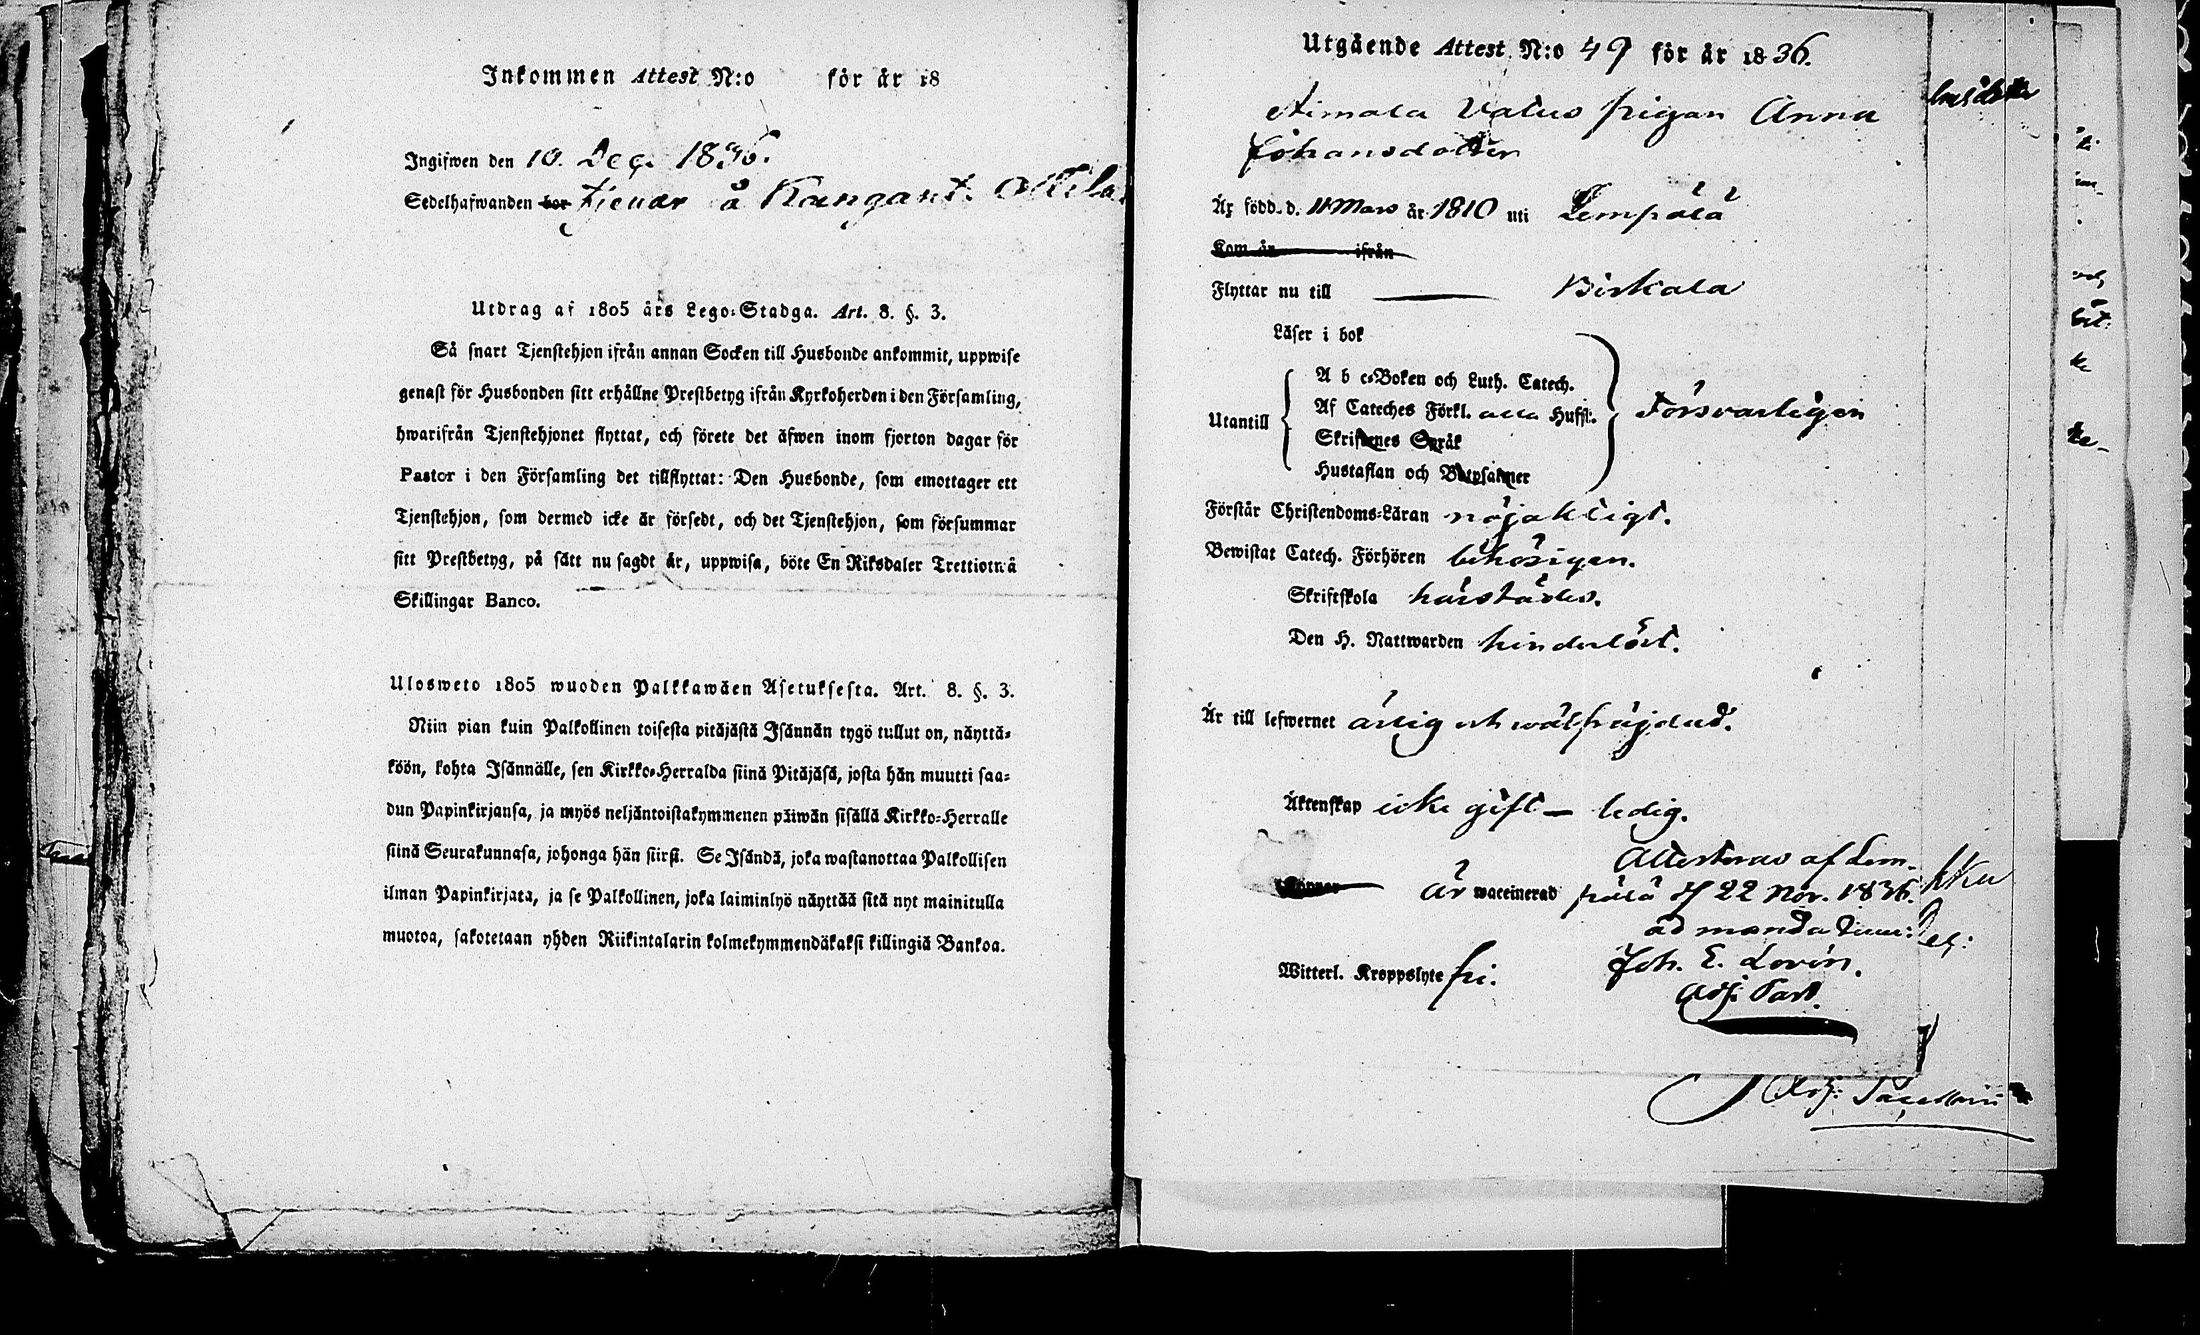 Inkommen Attest N:o för år 18
Ingifwen den 10. Dec. 1836.
Sedelhafwanden bor tjenar å Kangant.
Utdrag af 1805 års Lego-Stadga. Art. 8. §. 3.
Så snart Tjenstehjon ifrån annan Socken till Husbonde ankommit, uppwise
genast för Husbonden sitt erhållne Prestbetyg ifrån Kyrkoherden i den Församling,
hwarifrån Tjenstehjonet flyttat, och förete det äfwen inom fjorton dagar för
Pastor i den Församling det tillflyttat: Den Husbonde, som emottager ett
Tjenstehjon, som dermed icke är försedt, och det Tjenstehjon, som försummar
sitt Prestbetyg, på sätt nu sagdt är, uppwisa, böte En Riksdaler Trettiotwå
Skillingar Banco.
Ulosweto 1805 wuoden Palkkawäen Asetuksesta. Art. 8. §. 3.
Niin pian kuin Palkollinen toisesta pitäjästä Isännän tygö tullut on, näyttä-
köön, kohta Isännälle, sen Kirkko-Herralda siinä Pitäjäsä, josta hän muutti saa-
dun Papinkirjansa, ja myös neljäntoistakymmenen päiwän sisällä Kirkko-Herralle
siinä Seurakunnasa, johonga hän siirsi. Se Isändä, joka wastanottaa Palkollisen
ilman Papinkirjata, ja se Palkollinen, joka laiminlyö näyttää sitä nyt mainitulla
muotoa, sakotetaan yhden Riikintalarin kolmekymmendäkaksi killingiä Bankoa.
Utgående Attest N:o 49 för år 1836.
Aimala Valus pigan Anna
Johansdotter
Är född d. 11 Mars år 1810 uti Lempälä
Kom år ifrån
Flyttar nu till Birkala
Läser i bok
A b c-Boken och Luth. Catech.
Utantill Af Cateches Förkl. alla Huffst. Försvarligen
Skriftenes Språk
Hustaflan och Botpsalmer
Förstår Christendoms-Läran nöjaktigt.
Bewistat Catech. Förhören behörigen.
Skriftskola härstädes.
Den H. Nattwarden hinderlöst.
Är till lefwernet ärlig och wälfräjdad.
Äktenskap icke gift – ledig.
Attesteras af Lem-
Är waccinerad pälä d 22 Nov. 1836.
ad mandatum:
Witterl. Kroppslyte fri. Joh. E. Lovén.
Adj. Past.
Adj: